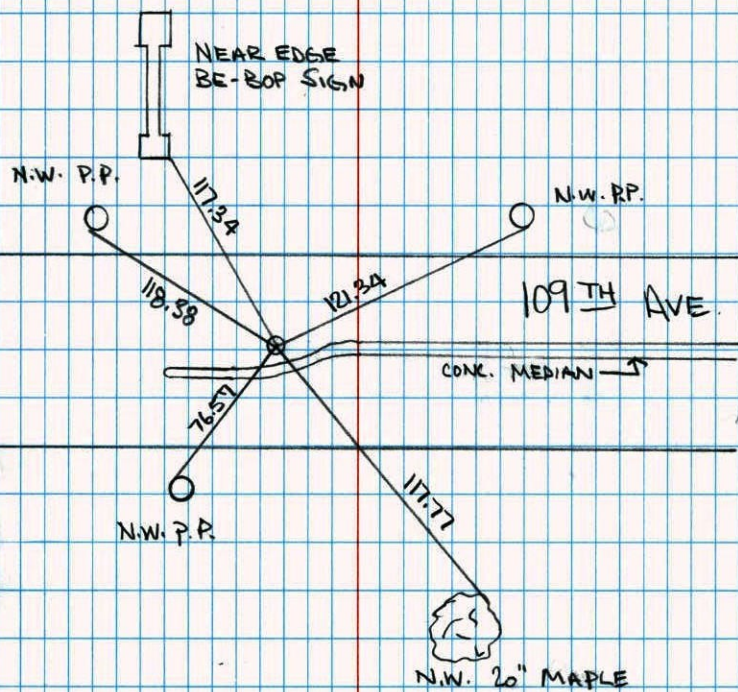 NEAR EDGE
BE-BOP SIGN
N.W. P.P.
117.34
N.W. P.P.
118.38
121.34
109TH AVE.
CONC. MEDIAN
76.57
117.77
N.W. P.P.
N.W. 20" MAPLE